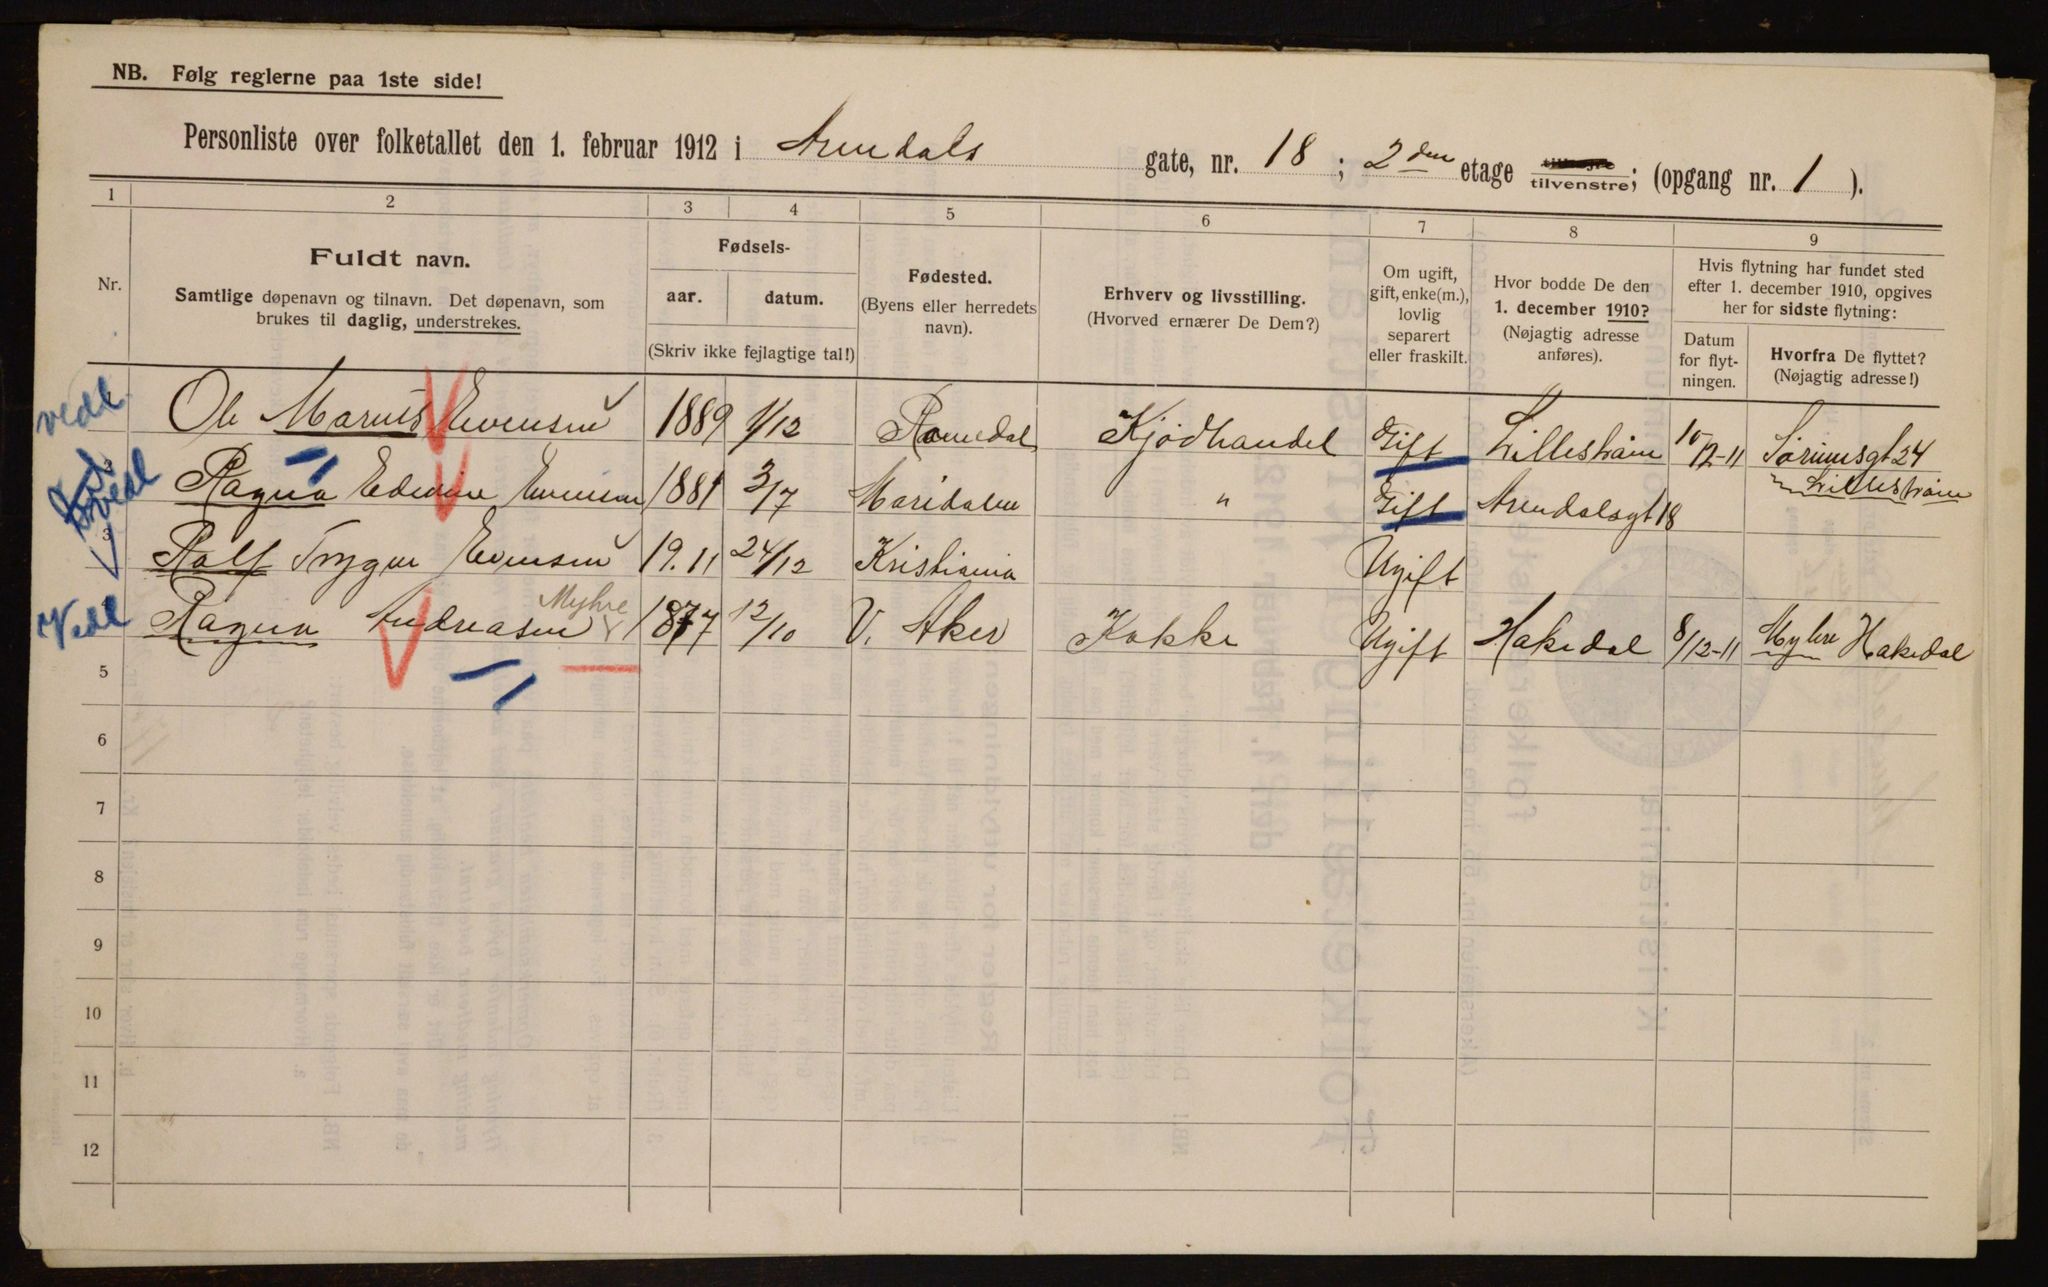 NB. Følg reglerne paa 1ste side!
Personliste over folketallet den 1. februar 1912 i Arendals gate, nr. 18; 2den etage tilvenstre; (opgang nr. 1).
1 2 3 4 5 6 7 8 9
Nr.
Fuldt navn.
Samtlige døpenavn og tilnavn. Det døpenavn, som
brukes til daglig, understrekes.
Fødsels-
aar. datum.
(Skriv ikke fejlagtige tal!)
Fødested.
(Byens eller herredets
navn).
Erhverv og livsstilling.
(Hvorved ernærer De Dem?)
Om ugift,
gift, enke(m.),
lovlig
separert
eller fraskilt.
Hvor bodde De den
1. december 1910?
(Nøjagtig adresse
anføres).
Hvis flytning har fundet sted
efter 1. december 1910, opgives
her for sidste flytning:
Datum
for flyt-
ningen.
Hvorfra De flyttet?
(Nøjagtig adresse!)
vedl Ole Marius Evensen 1889 1/12 Romedal Kjødhandel Gift Lillestrøm 10/12-11 Sørumsgt 24
Lillestrøm
2 vedl Ragna Edvine Evensen 1881 3/7 Maridalen " Gift Arendalsgt 18
3 Rolf Trygve Evensen 19.11 24/12 Kristiania Ugift
Myhre
Vedl Ragna Andreasen 1877 12/10 V. Aker Kokke Ugift Hakedal 8/12-11 Myhre Hakedal
5
6
7
8
9
10
11
12